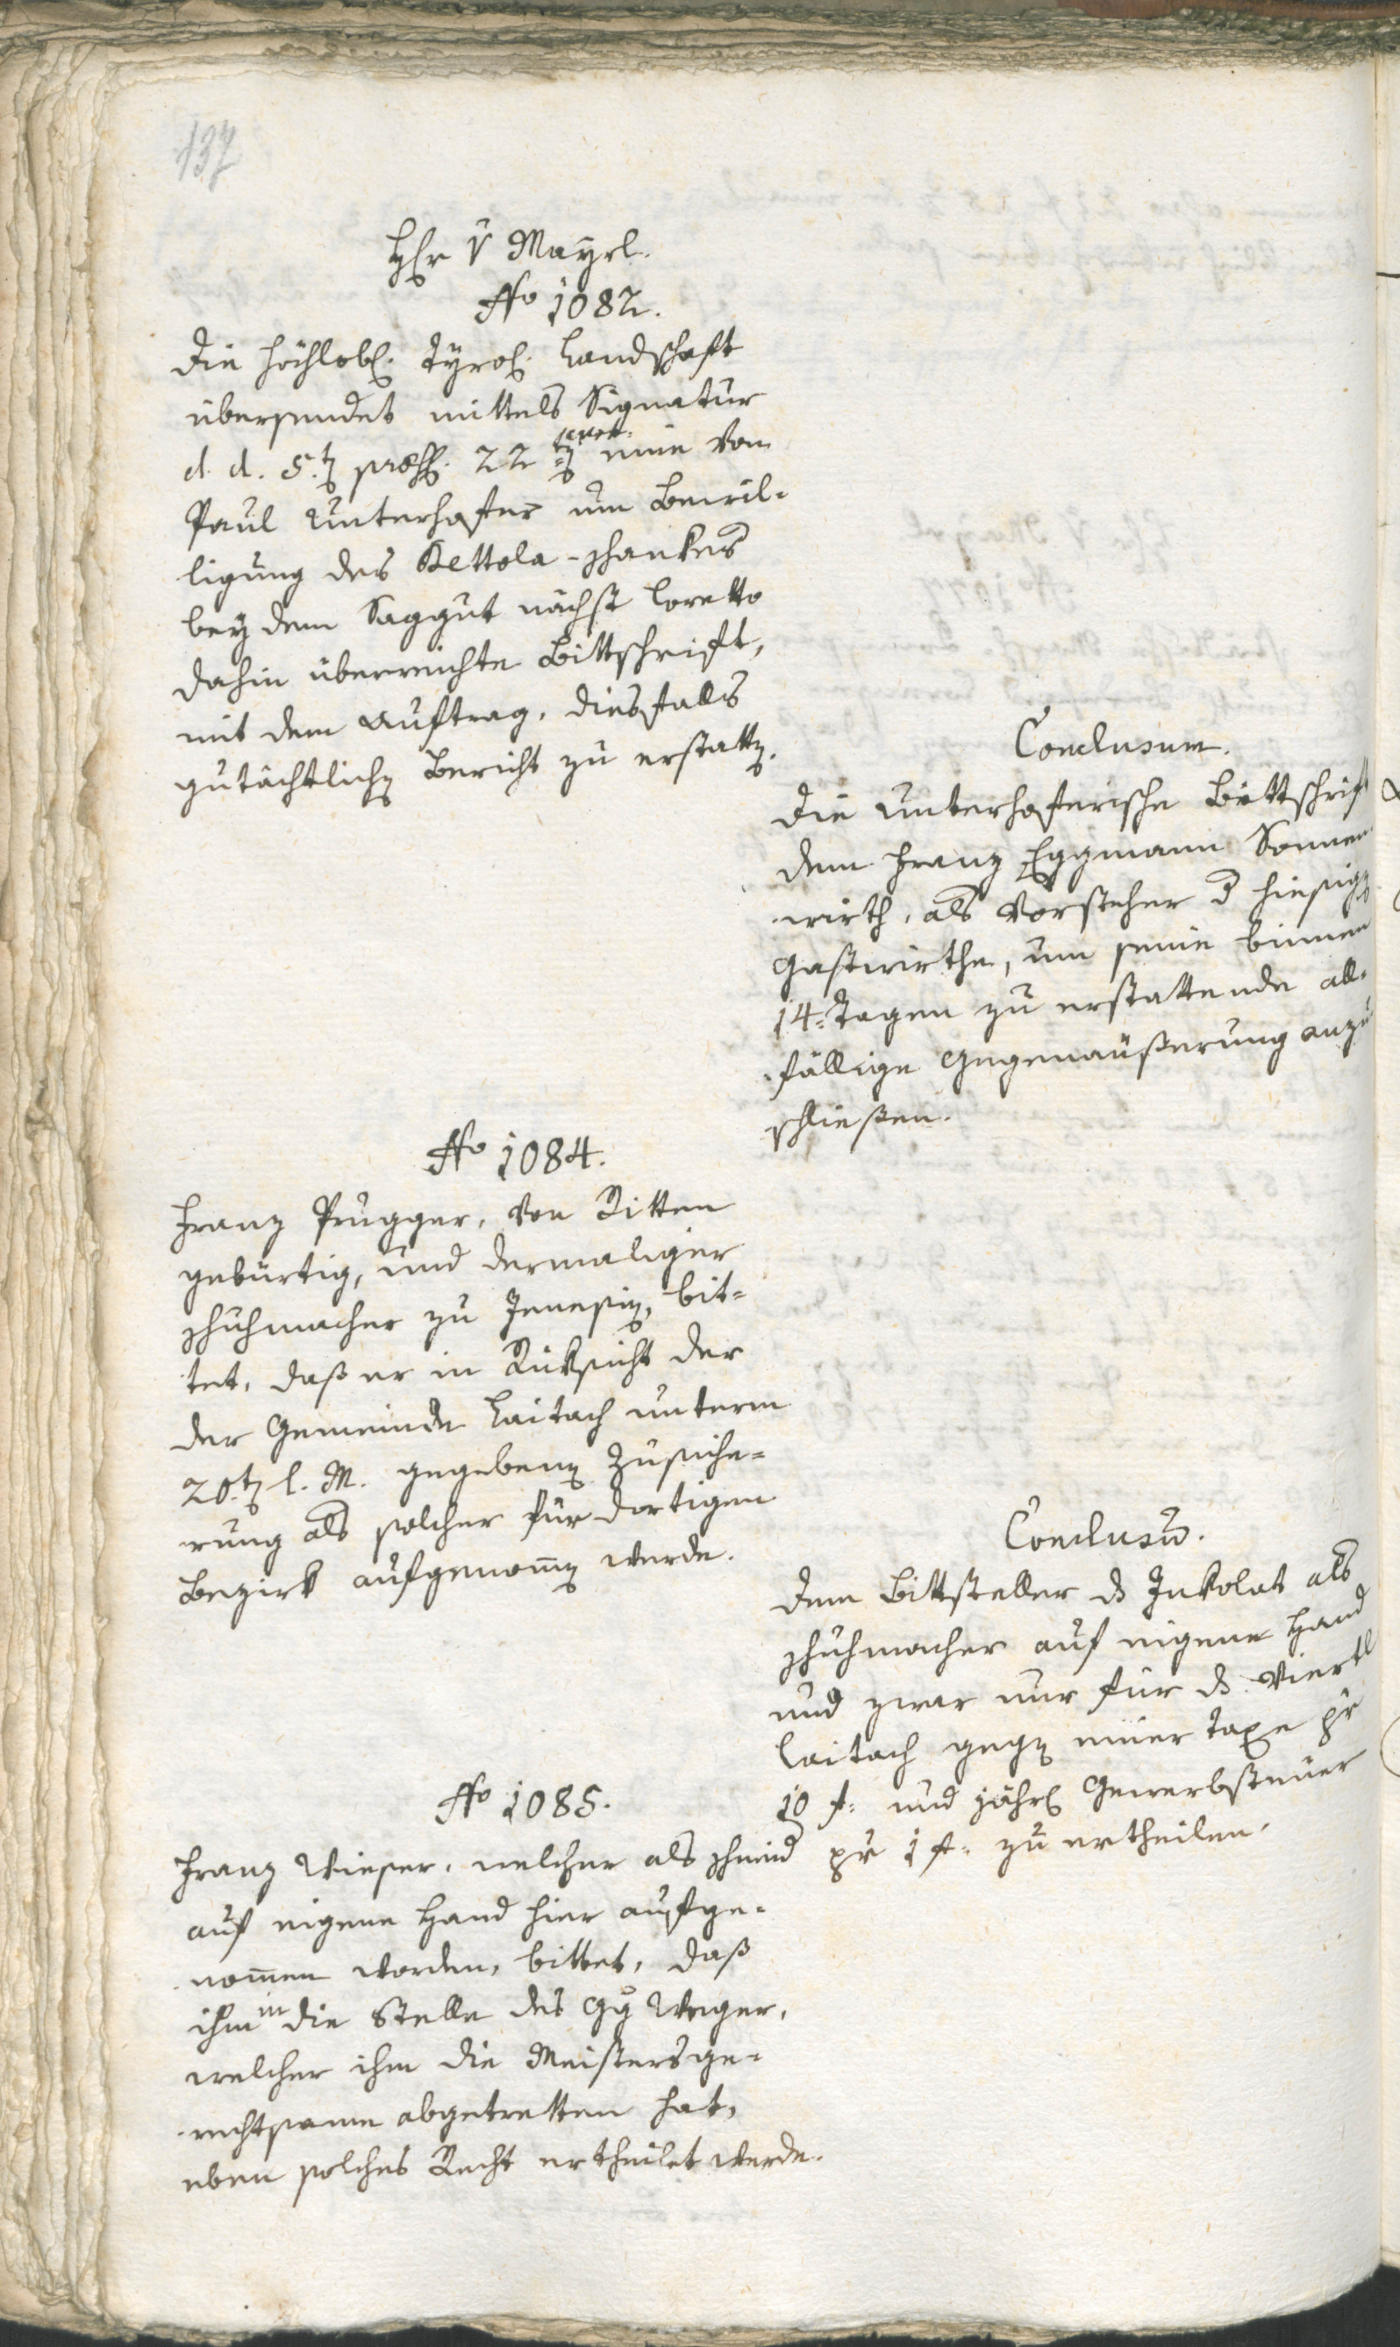 137
Hr v Mayrl.
No 1082.
Die hochlobl. Tyrol. Landschaft
übersendet mittels Signatur
d. d. 5.t præs. 22t eine von
Paul Unterhofer um Bewil-
ligung des Bettola-schankes
bey dem Saggut nächst Loretto
dahin überreichte Bittschrift,
mit dem Auftrag, diesfalls
gutächtlichen Bericht zu erstatten.
Conclusum.
Die Unterhoferische Bittschrift
dem Franz Eggmann Sonnen
wirth, als Vorsteher d hiesigen
Gastwirthe, um seine binnen
14. Tagen zu erstattende all-
fällige Gegenäußerung anzu
schließen.
No 1084.
Franz Prugger, von Ritten
gebürtig, und dermaliger
Schuhmacher zu Jenesien, bit-
tet, daß er in Rüksicht der
der Gemeinde Laitach unterm
20.t l. M. gegebenen Zusiche-
rung als solcher für dortigen
Bezirk aufgenommen werde.
Conclusum.
Dem Bittsteller ds Inkolat als
Schuhmacher auf eigene Hand
und zwar nur für ds Viertl
Laitach gegen einer Taxe pr
10 f. und jährl Gewerbsteuer
pr 1 f. zu ertheilen.
No 1085.
Franz Wieser, welcher als Schmid
auf eigene Hand hier aufge-
nommen worden, bittet, daß
ihm in die Stelle des Gg Weger,
welcher ihm die Meistersge-
rechtsame abgetretten hat,
eben solches Recht ertheilet werde.